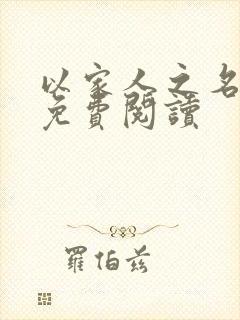 以家人之名
免費閱讀
羅伯茲